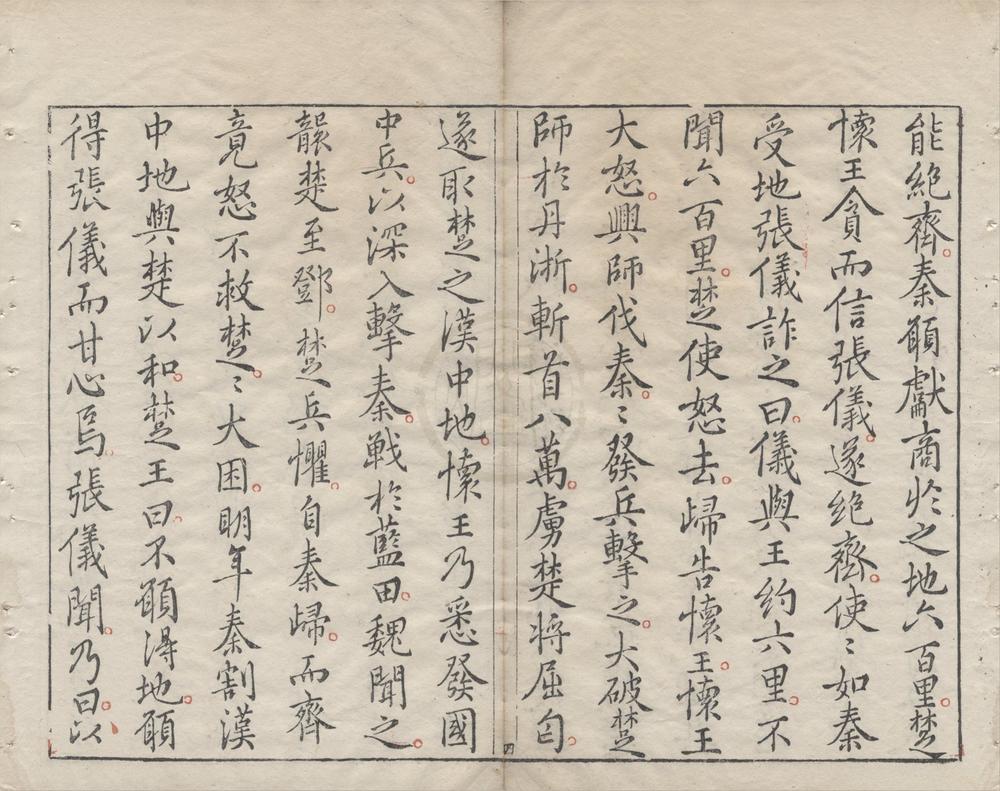 能絶齊。秦願獻商於之地六百里。楚
懷王貪而信張儀。遂絶齊。使〻如秦
受地張儀詐之曰。儀與王約六里。不
聞六百里。楚使怒去。歸告懷王。懷王
大怒。興師伐秦。〻發兵擊之。大破楚
師於丹淅。斬首八萬。虜楚将屈匄。
遂取楚之漢中地。懷王乃悉發國
中兵。以深入擊秦。戰於藍田。魏聞之。
襲楚至鄧。楚兵懼。自秦歸。而齊
竟怒不救楚。〻大困。明年秦割漢
中地與楚以和。楚王曰。不願得地。願
得張儀而甘心焉。張儀聞。乃曰。以
四